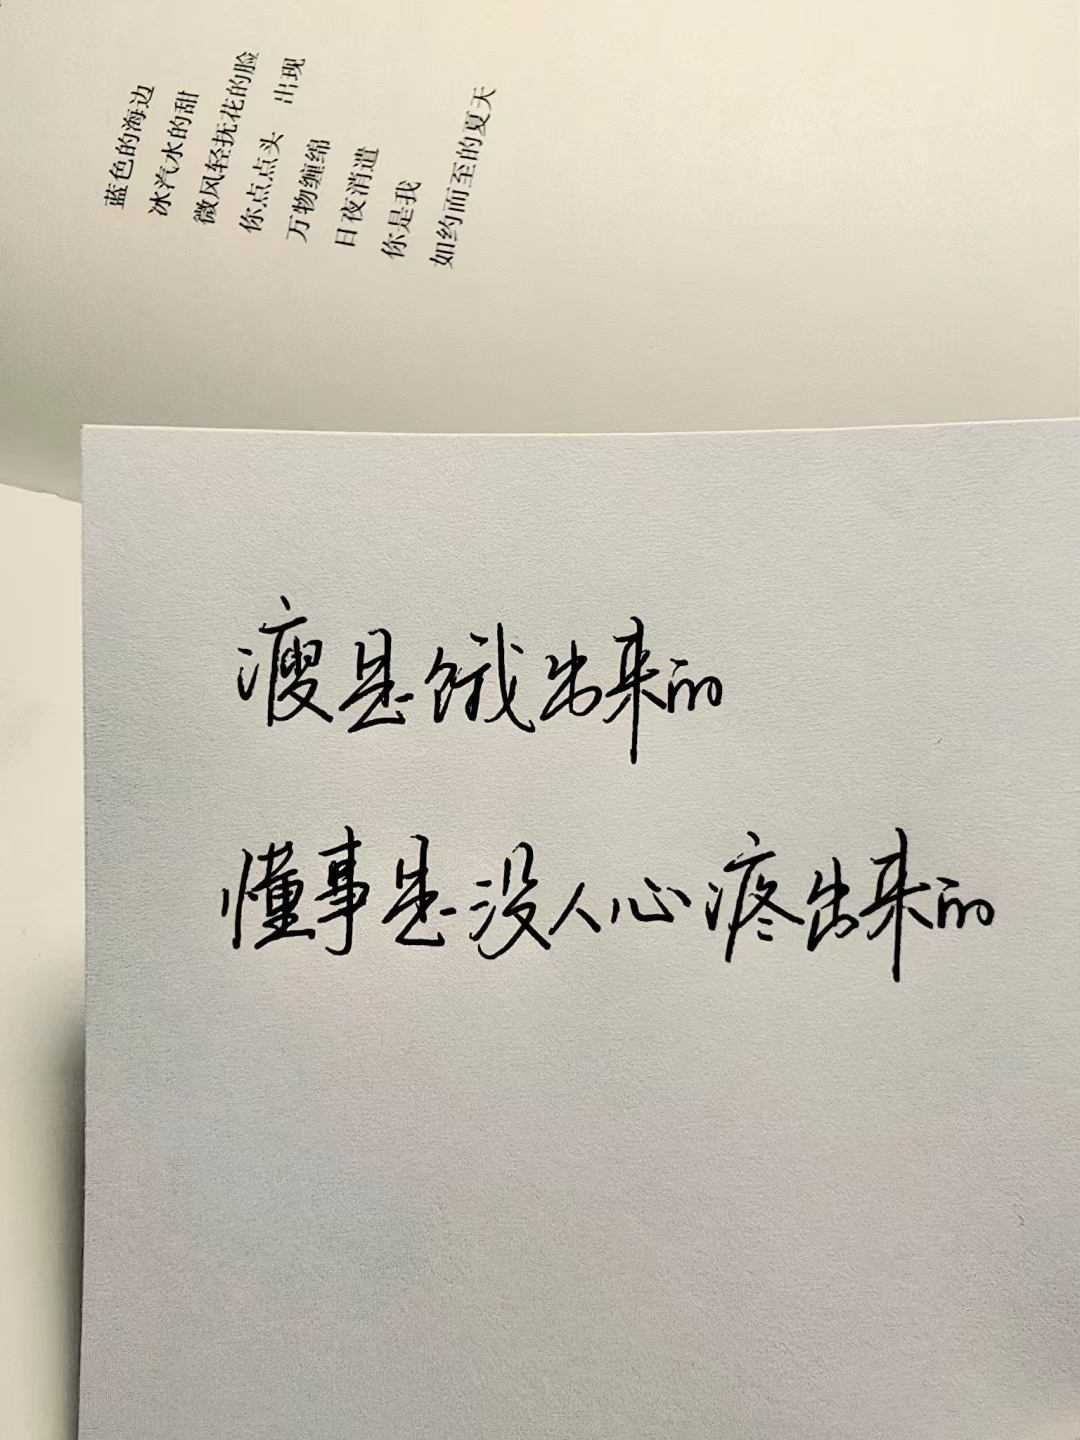 蓝色的海边
冰汽水的甜
微风轻抚花的脸
你点点头 出现
万物缠绵
日夜消遣
你是我
如约而至的夏天
瘦是饿出来的
懂事是没人心疼出来的